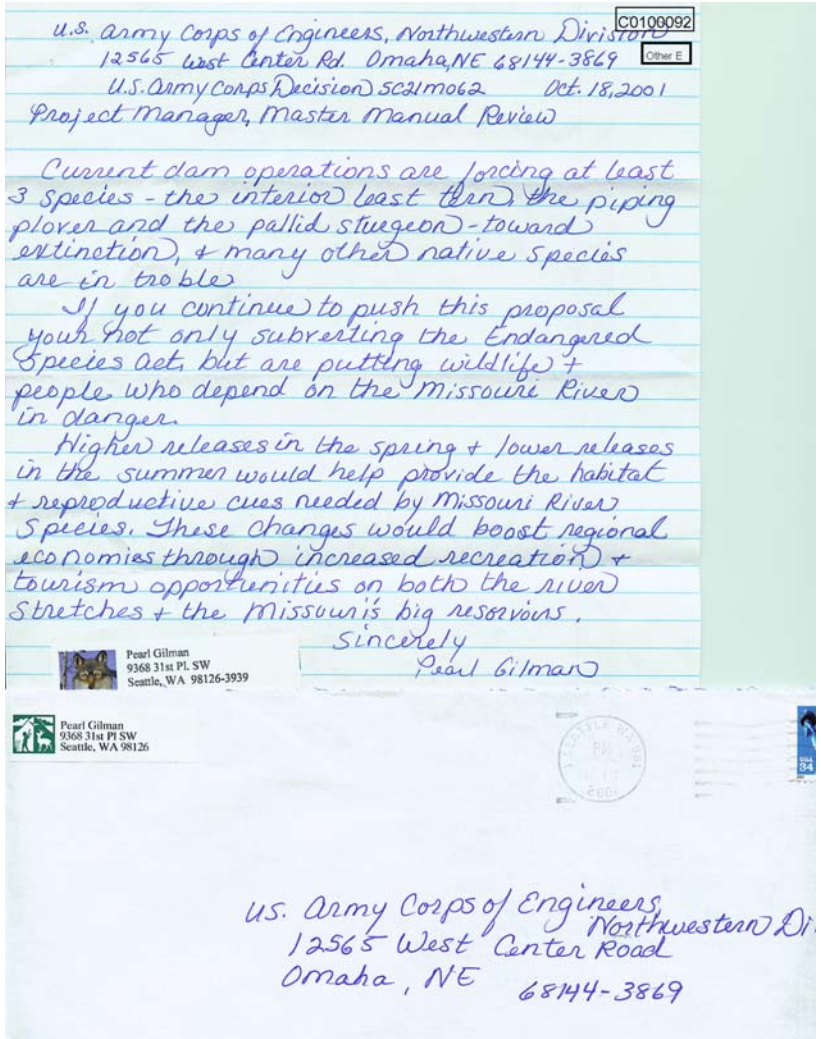 C0100092
Other E
U.S. Army Corps of Engineers, Northwestern Division
12565 West Center Rd. Omaha, NE 68144-3869
U.S. Army Corps Decision SC21M062 Oct. 18, 2001
Project Manager, Master Manual Review
Current dam operations are forcing at least
3 species - the interior least tern, the piping
plover and the pallid sturgeon - toward
extinction, + many other native species
are in troble
If you continue to push this proposal
your not only subverting the Endangered
Species Act, but are putting wildlife +
people who depend on the Missouri River
in danger.
Higher releases in the spring + lower releases
in the summer would help provide the habitat
+ reproductive cues needed by Missouri River
Species. These changes would boost regional
economies through increased recreation +
tourism opportunities on both the river
stretches + the Missouri's big resorvoirs.
Sincerely
Pearl Gilman
Pearl Gilman
9368 31st Pl. SW
Seattle, WA 98126-3939
Pearl Gilman
9368 31st Pl SW
Seattle, WA 98126
SEATTLE, WA
PM
2001
USA
34
U.S. Army Corps of Engineers,
Northwestern Di
12565 West Center Road
Omaha, NE 68144-3869